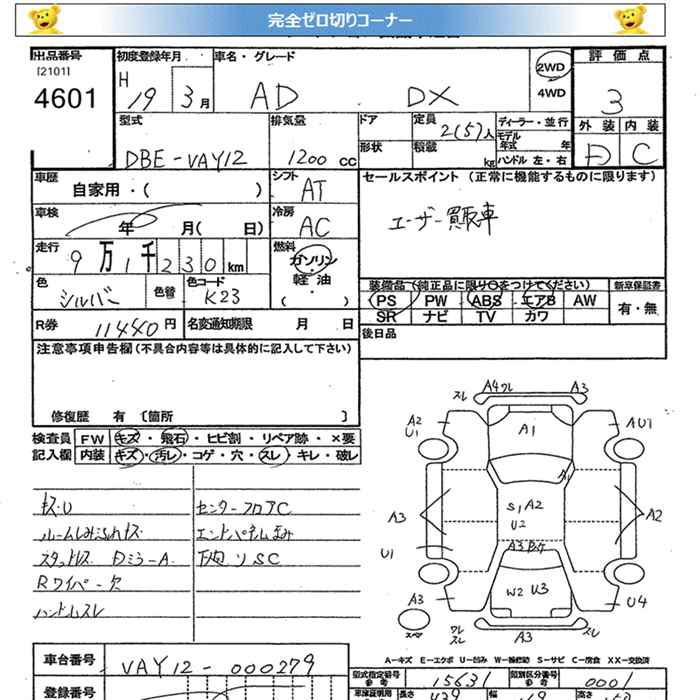 完全ゼロ切りコーナー
出品番号
[2101]
4601
初度登録年月
H 19 3月
車名・グレード
AD DX
2WD
4WD
評価点
3
外装 内装
D C
型式
DBE-VAY12
排気量
1200 cc
ドア
形状
定員
2(5)人
積載
kg
ディーラー・並行
モデル年式 年
ハンドル 左・右
車歴
自家用・( )
シフト
AT
車検
年 月( 日)
冷房
AC
走行
9万1千230km
燃料
ガソリン
・
軽油
・
( )
色
シルバー
色替
色コード
K23
R券
11440円
名変通知期限 月 日
セールスポイント (正常に機能するものに限ります)
ユーザー買取車
装備品(純正品に限り○をつけてください)
PS PW ABS エアB AW
SR ナビ TV カワ
新車保証書
有・無
後日品
注意事項申告欄(不具合内容等は具体的に記入して下さい)
修復歴 有〔箇所 〕
検査員
記入欄
FW キズ・飛石・ヒビ割・リペア跡・×要
内装 キズ・汚レ・コゲ・穴・スレ・キレ・破レ
キズ・U
ルームしみ汚れキズ
スタッドレス Dミラ-A
Rワイパー欠
ハンドルスレ
センターフロアC
エンドパネル歪み
下廻リSC
スレ A4ワレ A3
A2
U1
A1
AU1
A1
A3
S1 A2
U2
A2
U1
A3
A3
W2 U3
U4
スペア
ワレ
スレ
A3
スレ
A-キズ E-エクボ U-凹み W-補修跡 S-サビ C-腐食 XX-交換済
車台番号
VAY12-000279
登録番号
型式指定番号
参考
15631
類別区分番号
参考
0001
車庫証明用
参考
長さ
439
幅
高さ